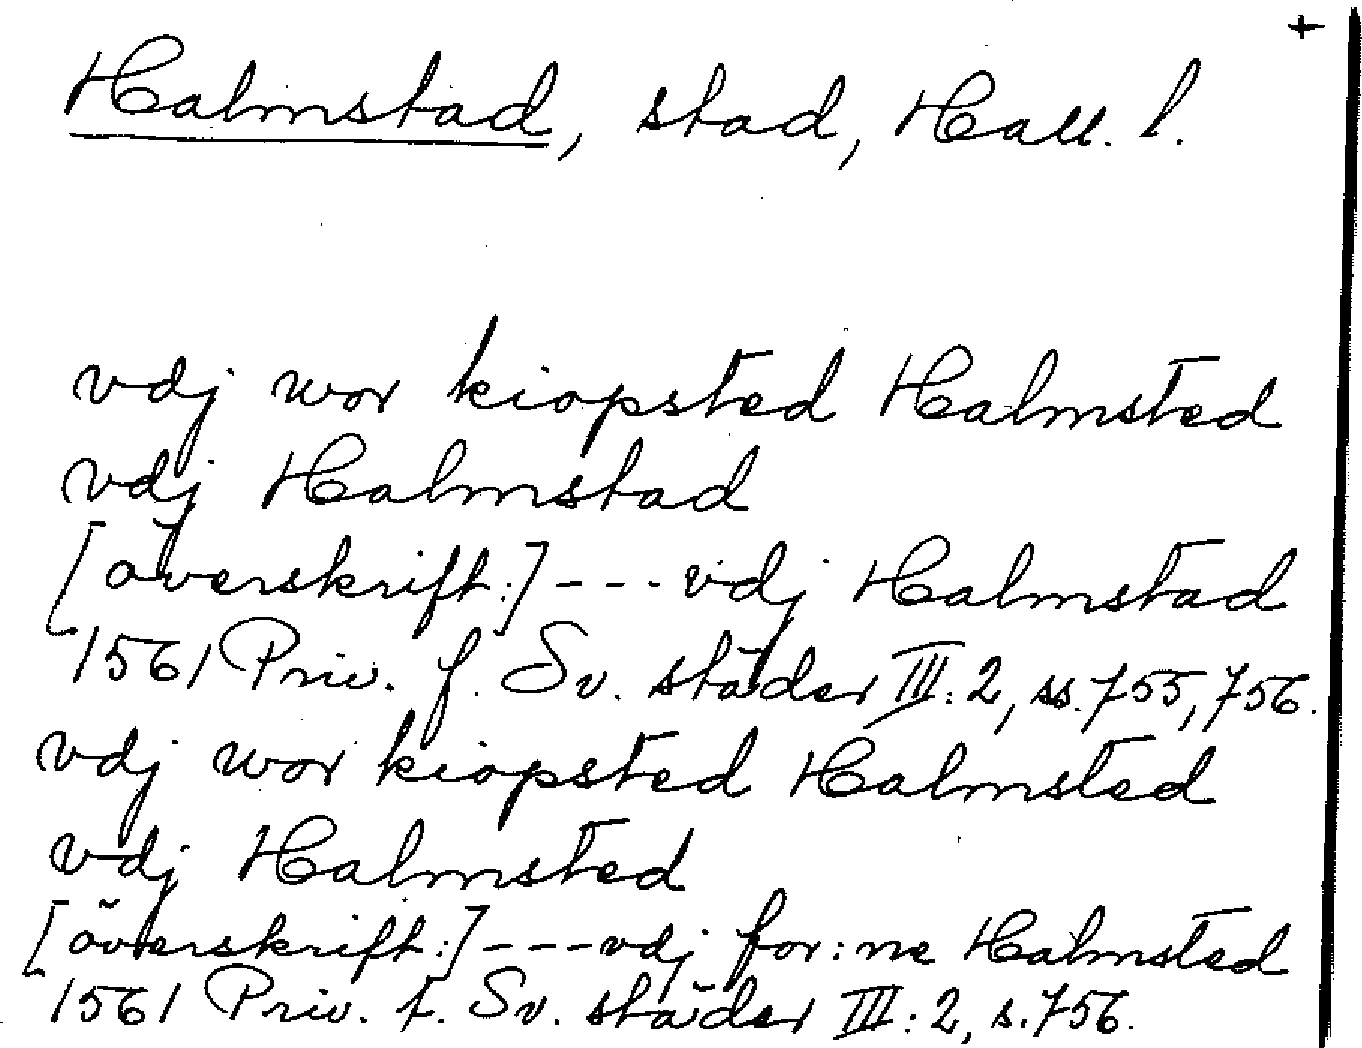 +
Halmstad, stad, Hall. l.
vdj wor kiøpsted Halmsted
vdj Halmstad
[överskrift:] --- vdj Halmstad
1561 Priv. f. Sv. städer III: 2, ss. 755, 756.
vdj wor kiøpsted Halmsted
vdj Halmsted
[överskrift:] --- vdj for:ne Halmsted
1561 Priv. f. Sv. städer III: 2, s. 756.